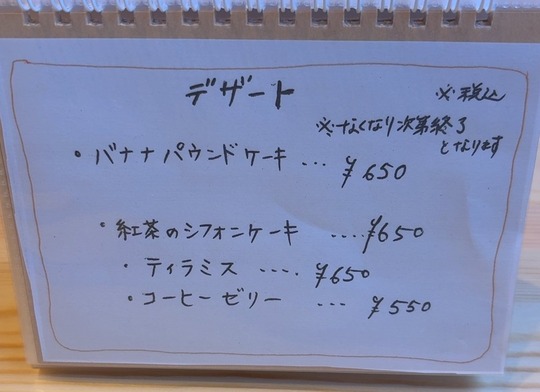 デザート
※税込
※なくなり次第終了
となります
・バナナパウンドケーキ … ¥650
・紅茶のシフォンケーキ …. ¥650
・ティラミス …. ¥650
・コーヒーゼリー … ¥550